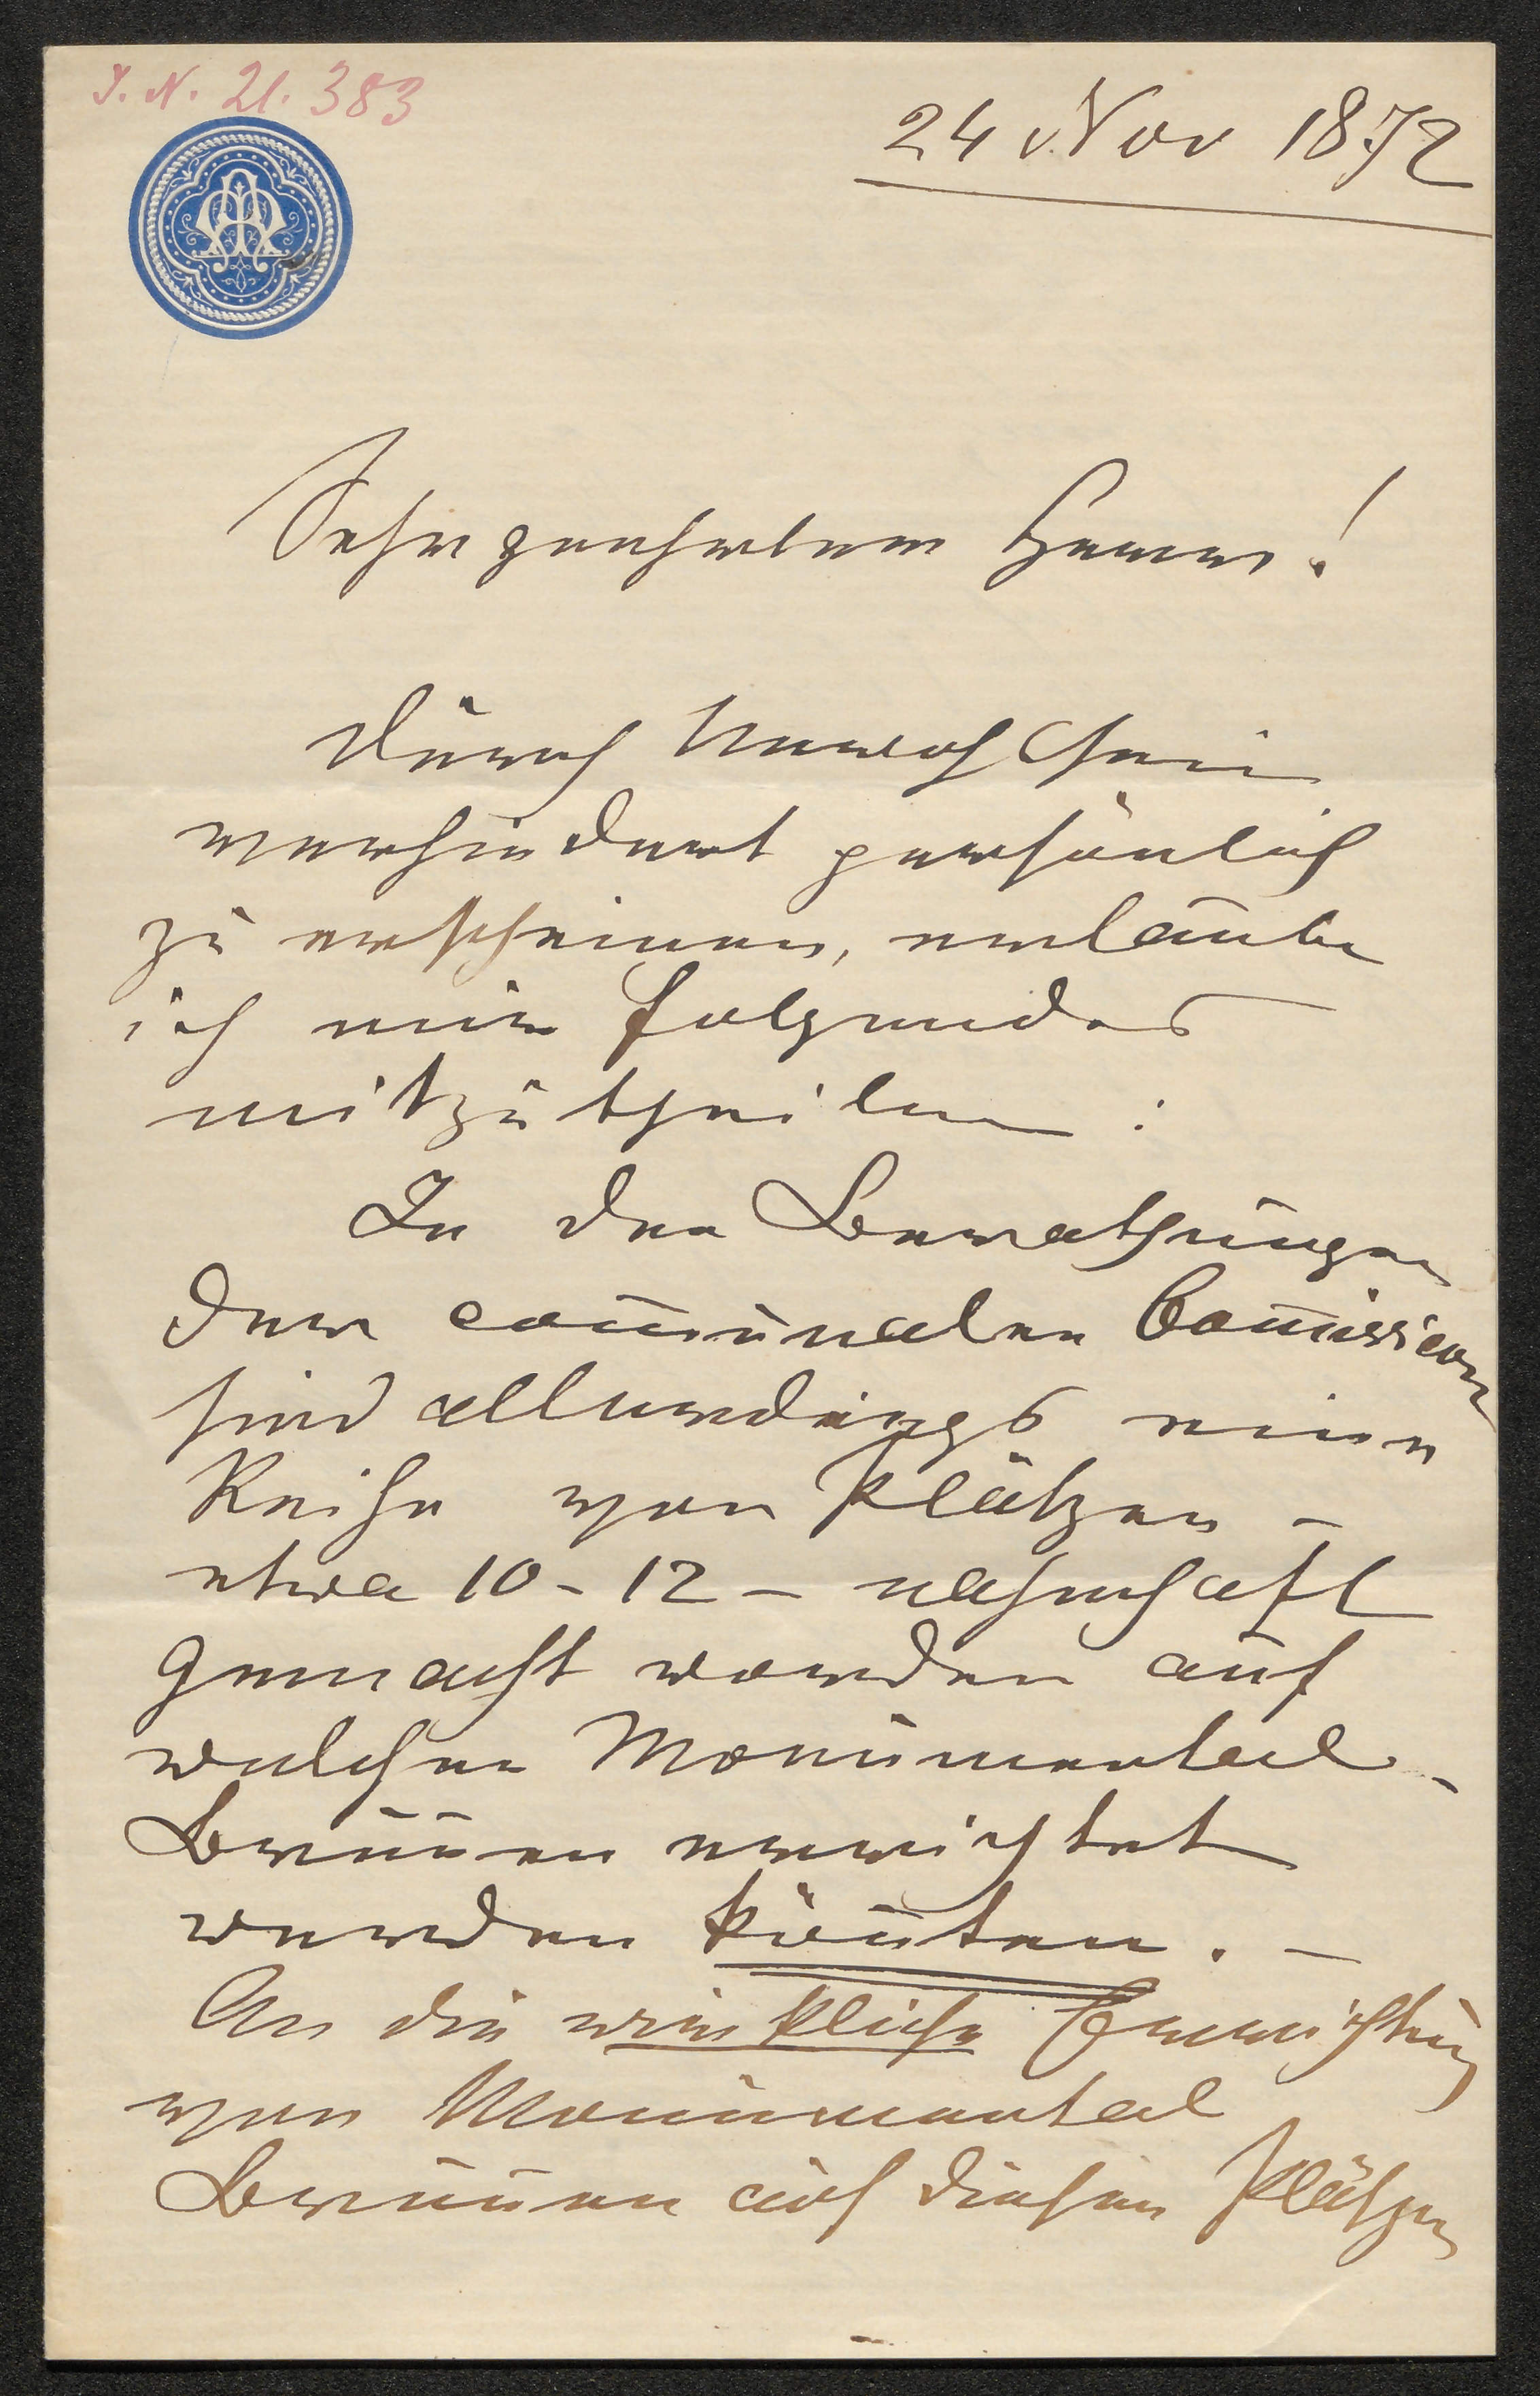 I. N. 21.383
24 Nov 1872
Sehr geehrter Herr!
Durch Unwohlsein
verhindert persönlich
zu erscheinen, erlaube
ich mir folgendes
mitzutheilen:
In den Berathungen
der com̄unalen Com̄ission
sind allerdings eine
Reihe von Plätzen –
etwa 10 - 12 – nahmhaft
gemacht worden auf
welchen Monumental-
Brun̄en errichtet
werden kön̄ten. –
An die wirkliche Errichtung
von Monumental
Brun̄en auf diesen Plätzen